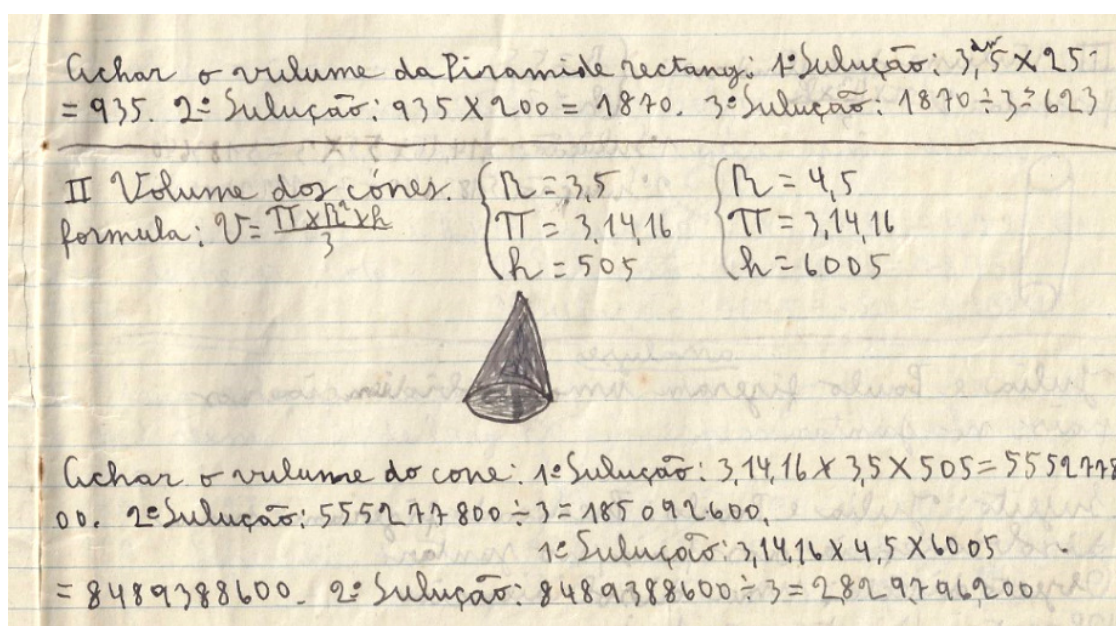 Achar o vulume da Piramide rectang: 1ª Sulução: 3,5 X 25
= 935. 2ª Sulução: 935 X 200 = 1870. 3ª Sulução: 1870 ÷ 3 = 623
II Volume dos cónes. R = 3,5 R = 4,5
formula: V = π x R² x h / 3 π = 3,14,16 π = 3,14,16
h = 505 h = 6005
Achar o vulume do cone: 1ª Sulução: 3,14,16 X 3,5 X 505 = 5552778
00. 2ª Sulução: 555277800 ÷ 3 = 185092600.
1ª Sulução: 3,14,16 X 4,5 X 6005
= 8489388600. 2ª Sulução: 8489388600 ÷ 3 = 2829796200